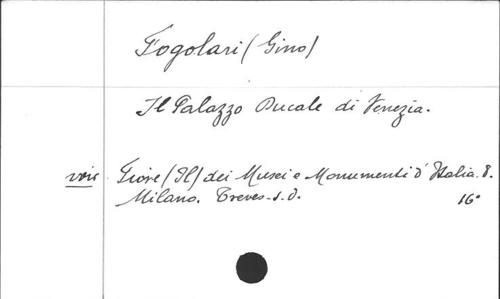 Fogolari (Gino)
Il Palazzo Ducale di Venezia.
voir Fiore (Il) dei Musei e Monumenti d'Italia. 8.
Milano. Treves. s.d. 16°